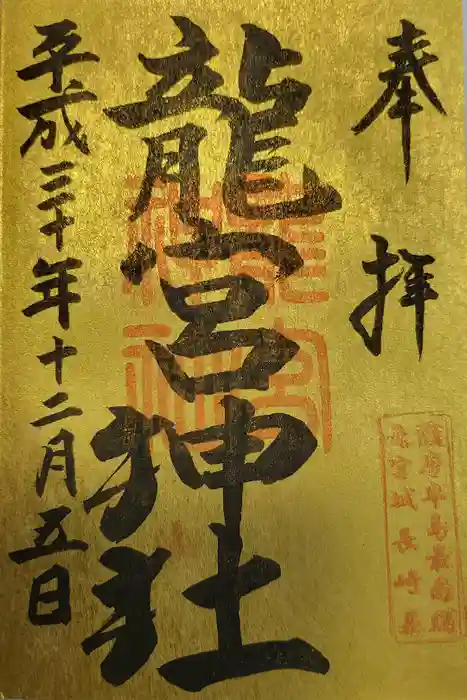 奉拝
龍宮神社
平成三十年十二月五日
龍宮
神社
薩摩半島最南端
龍宮城長崎鼻